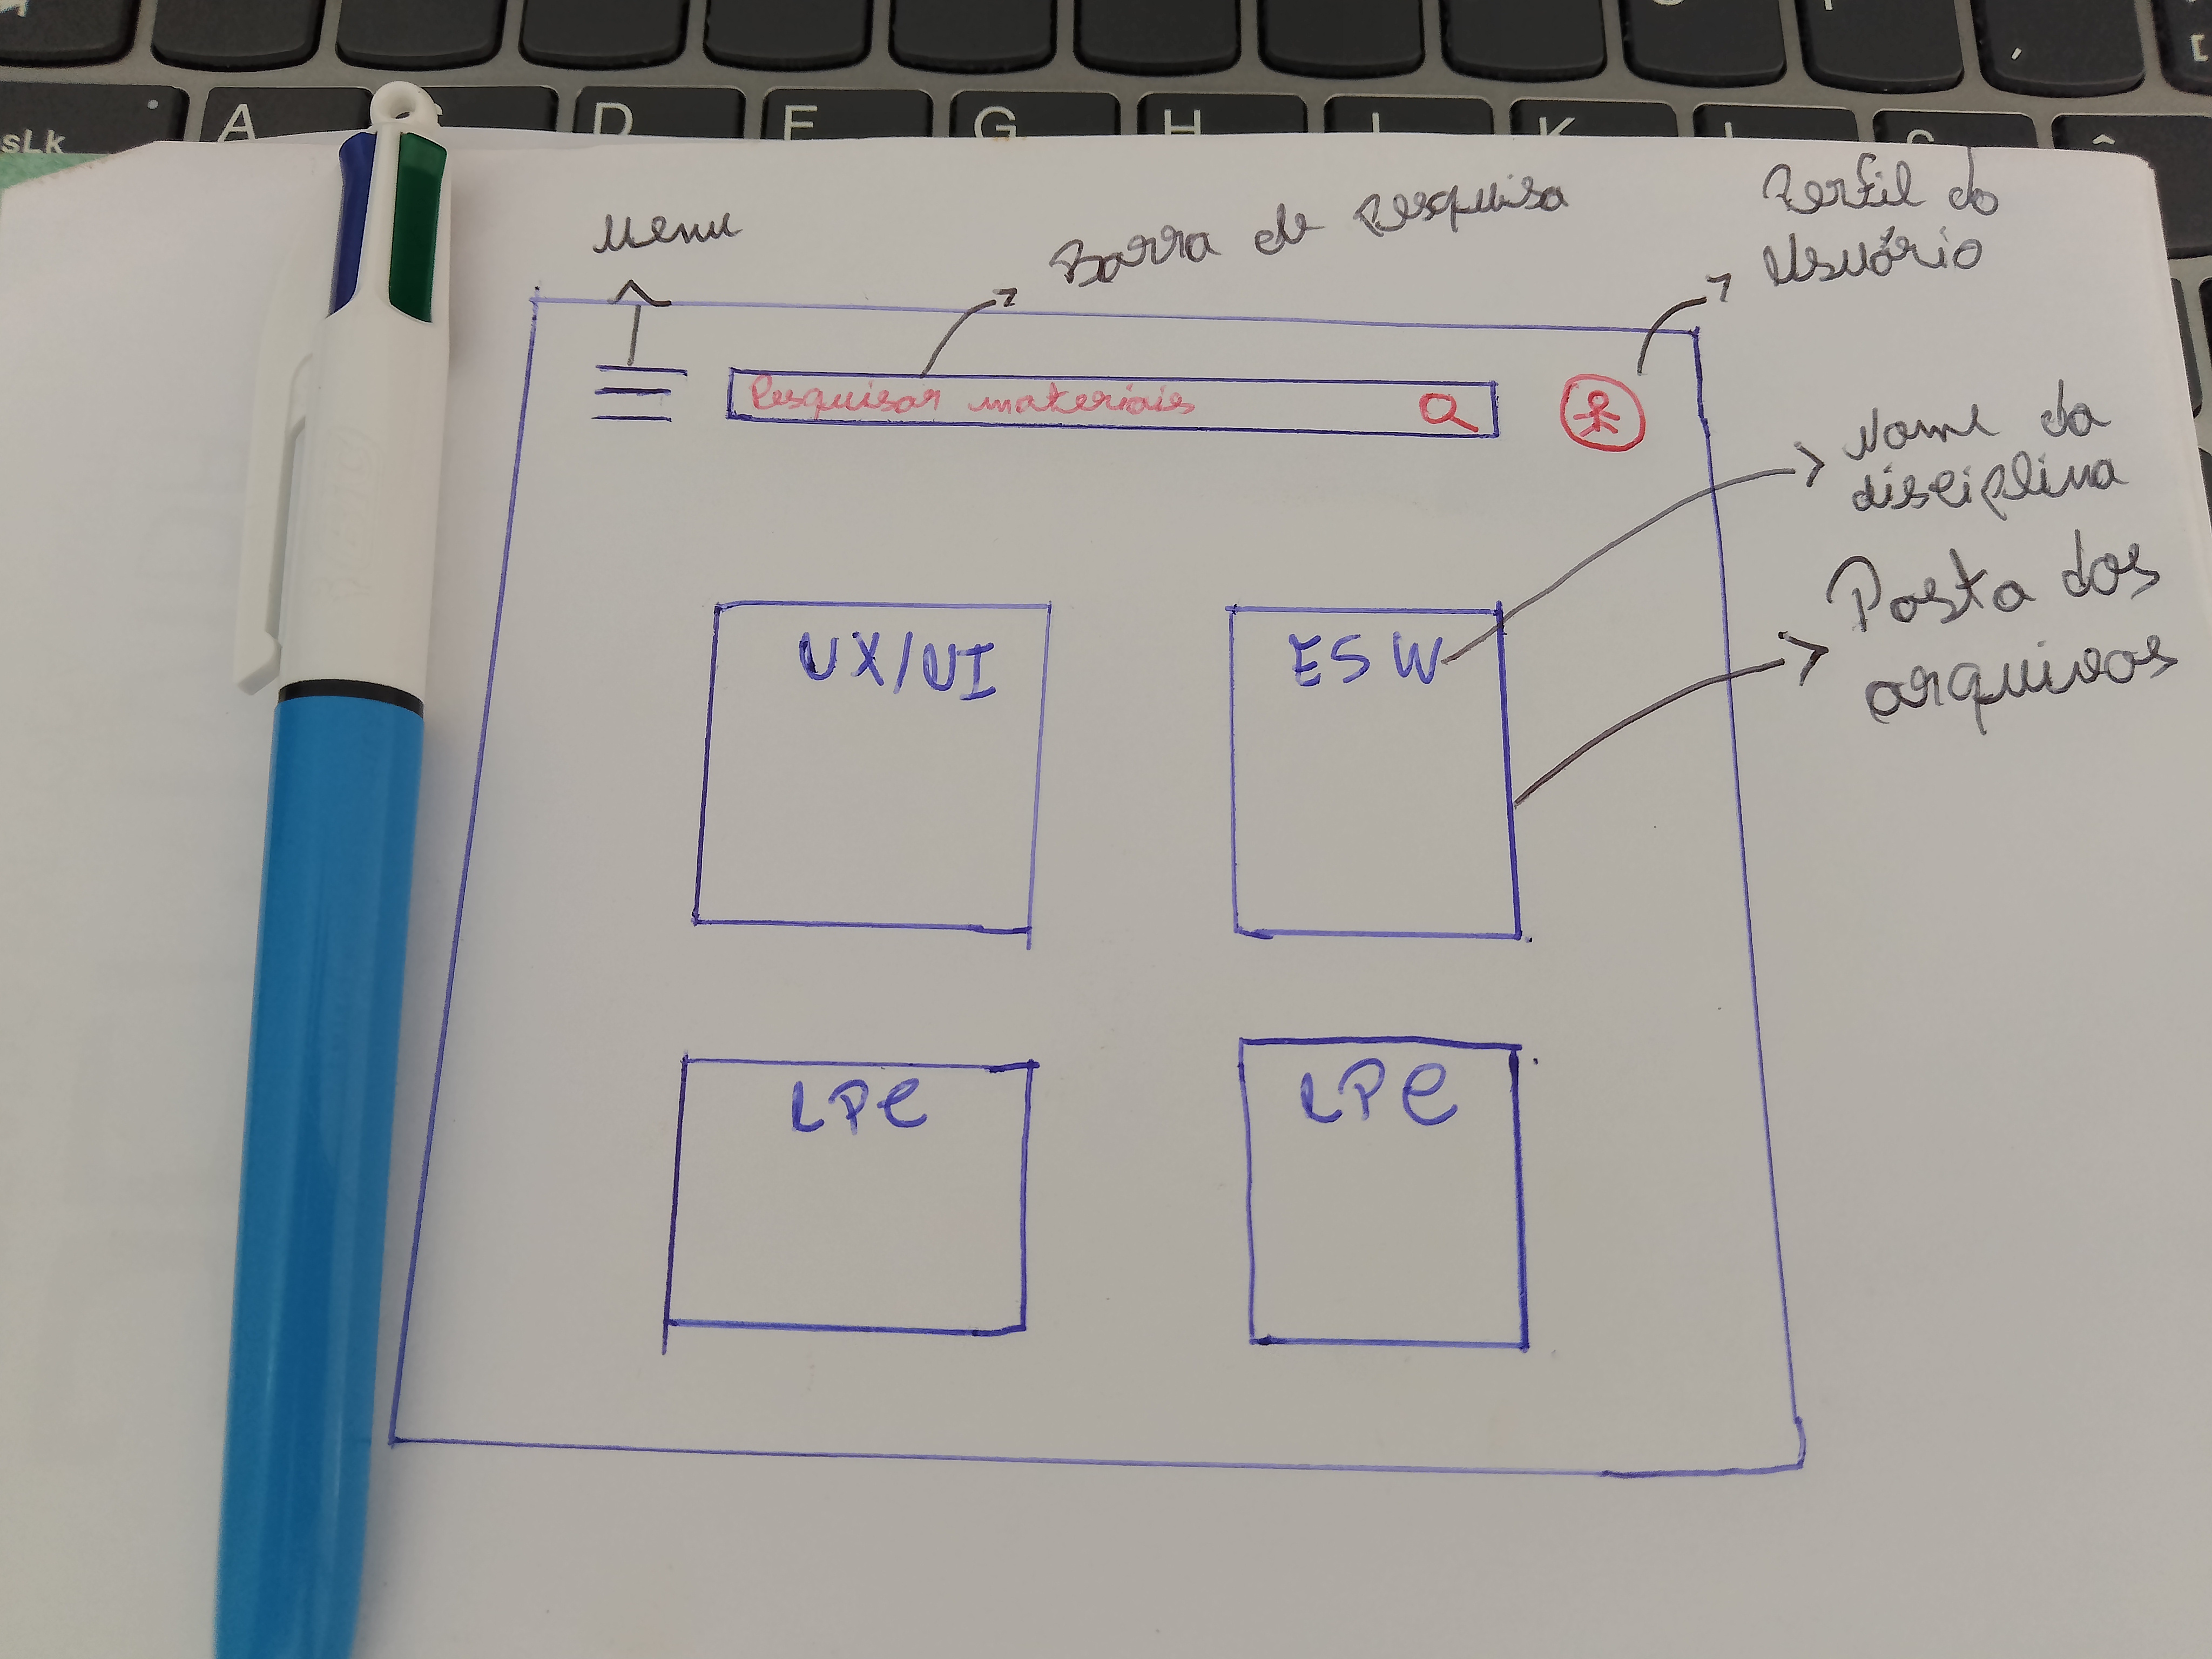 sLk A S D F G H J K L Ç ^
Menu
Barra de Pesquisa
Perfil do
Usuário
Pesquisar materiais
Nome da
disciplina
Pasta dos
arquivos
UX/UI
ESW
LPC
LPC